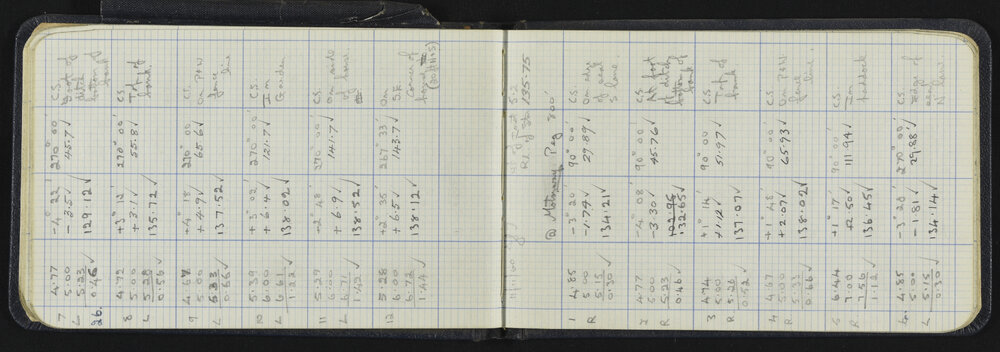 7 4.77 -4° 22' 270° 00' C.S.
L 5.00 -3.5✓ 45.7✓ foot of
5.23 129.12✓ ditch
26. 0.46✓ bottom of
bank
8 4.72 +3° 12' 270° 00' C.S.
L 5.00 +3.1✓ 55.8✓ Top of
5.28 135.72✓ bank
0.56✓
9 4.67 +4° 18' 270° 00' C.S.
5.00 +4.9✓ 65.6✓ On P&W
L 5.33 137.52✓ fence
0.66✓ line
10 5.39 +3° 02' 270° 00' C.S.
L 6.00 +6.4✓ 121.7✓ In
6.61 138.02✓ Garden
1.22✓
11 5.29 +2° 48' 270° 00' C.S.
L 6.00 +6.9✓ 141.7✓ On side
6.71 138.52✓ of
1.42✓ house
12 5.28 +2° 35' 267° 33' On
6.00 +6.5✓ 143.7✓ S.E.
6.72 138.12✓ Corner of
1.44✓ house
@ Peg 800' 135.75
1 4.85 -3° 20' 90° 00' C.S.
R 5.00 -1.74✓ 29.89✓ On edge
5.15 134.21✓ of seal
0.30✓ S lane.
2 4.77 -4° 08' 90° 00' C.S.
R 5.00 -3.30✓ 45.76✓ At foot
5.23 of ditch
0.46✓ 132.65✓ bottom of
bank
3 4.74 +1° 14' 90° 00' C.S.
R 5.00 +1.12✓ 51.97✓ Top of
5.26 137.07✓ bank
0.52✓
4 4.67 +1° 48' 90° 00' C.S.
R 5.00 +2.07✓ 65.93✓ On P&W
5.33 138.02✓ fence
0.66✓ line
5 6.44 +1° 17' 90° 00' C.S.
R 7.00 +2.50✓ 111.94✓ In
7.56 136.45✓ paddock
1.12✓
6 4.85 -3° 28' 270° 00' C.S.
L 5.00 -1.81✓ 29.88✓ edge of
5.15 134.14✓ seal
0.30✓ N lane.